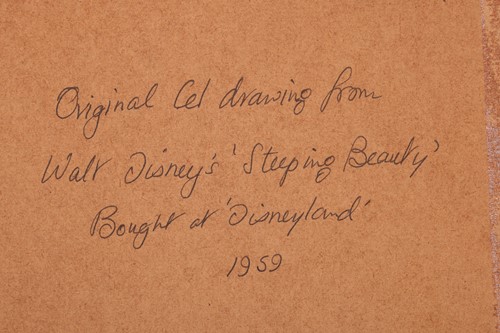 Original Cel drawing from
Walt Disney's 'Sleeping Beauty'
Bought at 'Disneyland'
1959